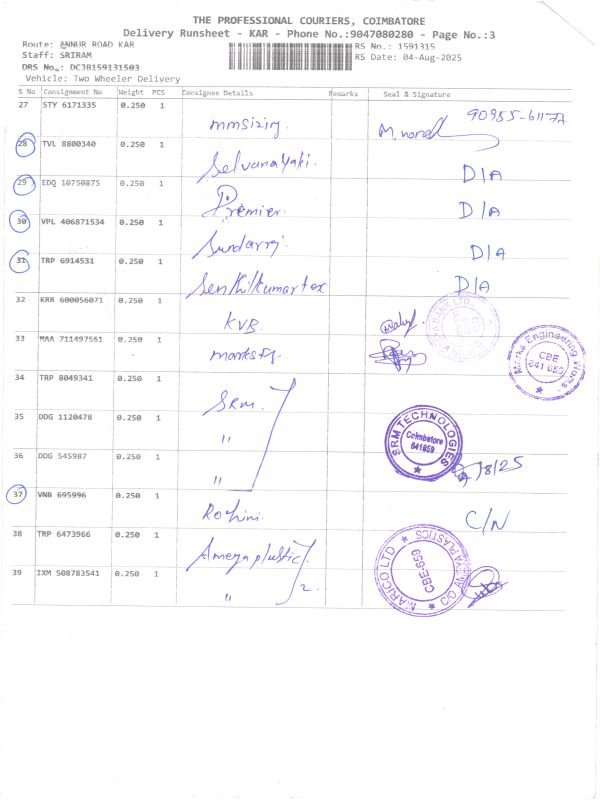 THE PROFESSIONAL COURIERS, COIMBATORE
Delivery Runsheet - KAR - Phone No.:9047080280 - Page No.:3
Route: ANNUR ROAD KAR RS No.: 1591315
Staff: SRIRAM RS Date: 04-Aug-2025
DRS No.: DCJB159131503
Vehicle: Two Wheeler Delivery
S No Consignment No Weight PCS Consignee Details Remarks Seal & Signature
27 STY 6171335 0.250 1
28 TVL 8800340 0.250 1 Selvanayaki. D/A
29 EDQ 10750875 0.250 1 Premier. D/A
30 VPL 406871534 0.250 1 Sundarraj D/A
31 TRP 6914531 0.250 1 Senthilkumar tex D/A
32 KRR 600056071 0.250 1 KVB.
33 MAA 711497561 0.250 1
Marks Engineering Works CBE 641 659
34 TRP 8049341 0.250 1 Srm.
35 DDG 1120478 0.250 1 "
SRM TECHNOLOGIES Coimbatore 641659
36 DDG 545987 0.250 1 "
/8/25
37 VNB 695996 0.250 1 Rohini. C/N
38 TRP 6473966 0.250 1 Amega plastic
39 IXM 508783541 0.250 1 " 2.
MARICO LTD C/O. AMEYA PLASTICS CBE-659